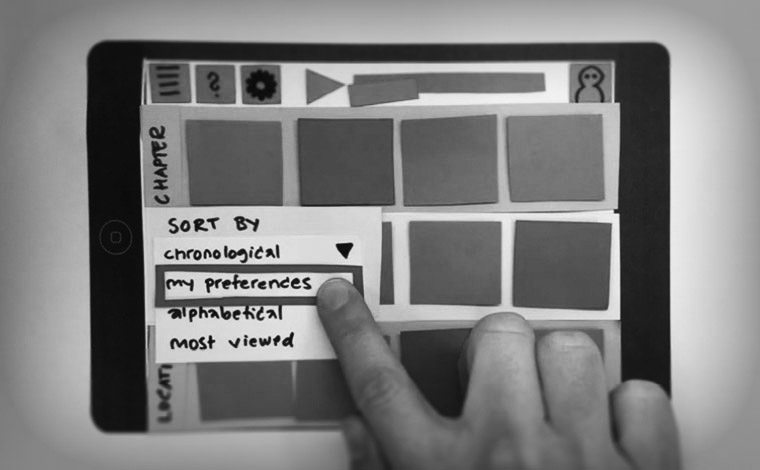 ?
CHAPTER
SORT BY
chronological
my preferences
alphabetical
most viewed
LOCATI